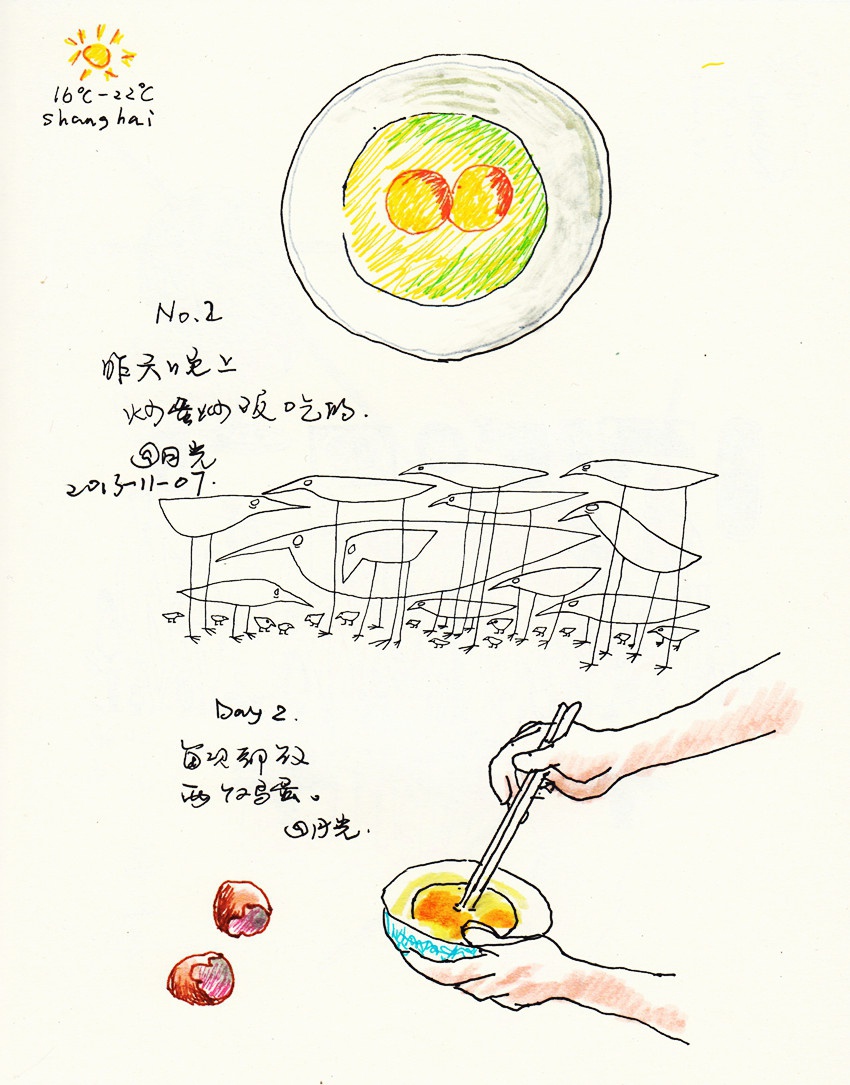 16℃-22℃
shanghai
No.2
昨天晚上
炒蛋炒饭吃的.
@月光
2013-11-07.
Day 2.
每次都放
两个鸡蛋。
@月光.